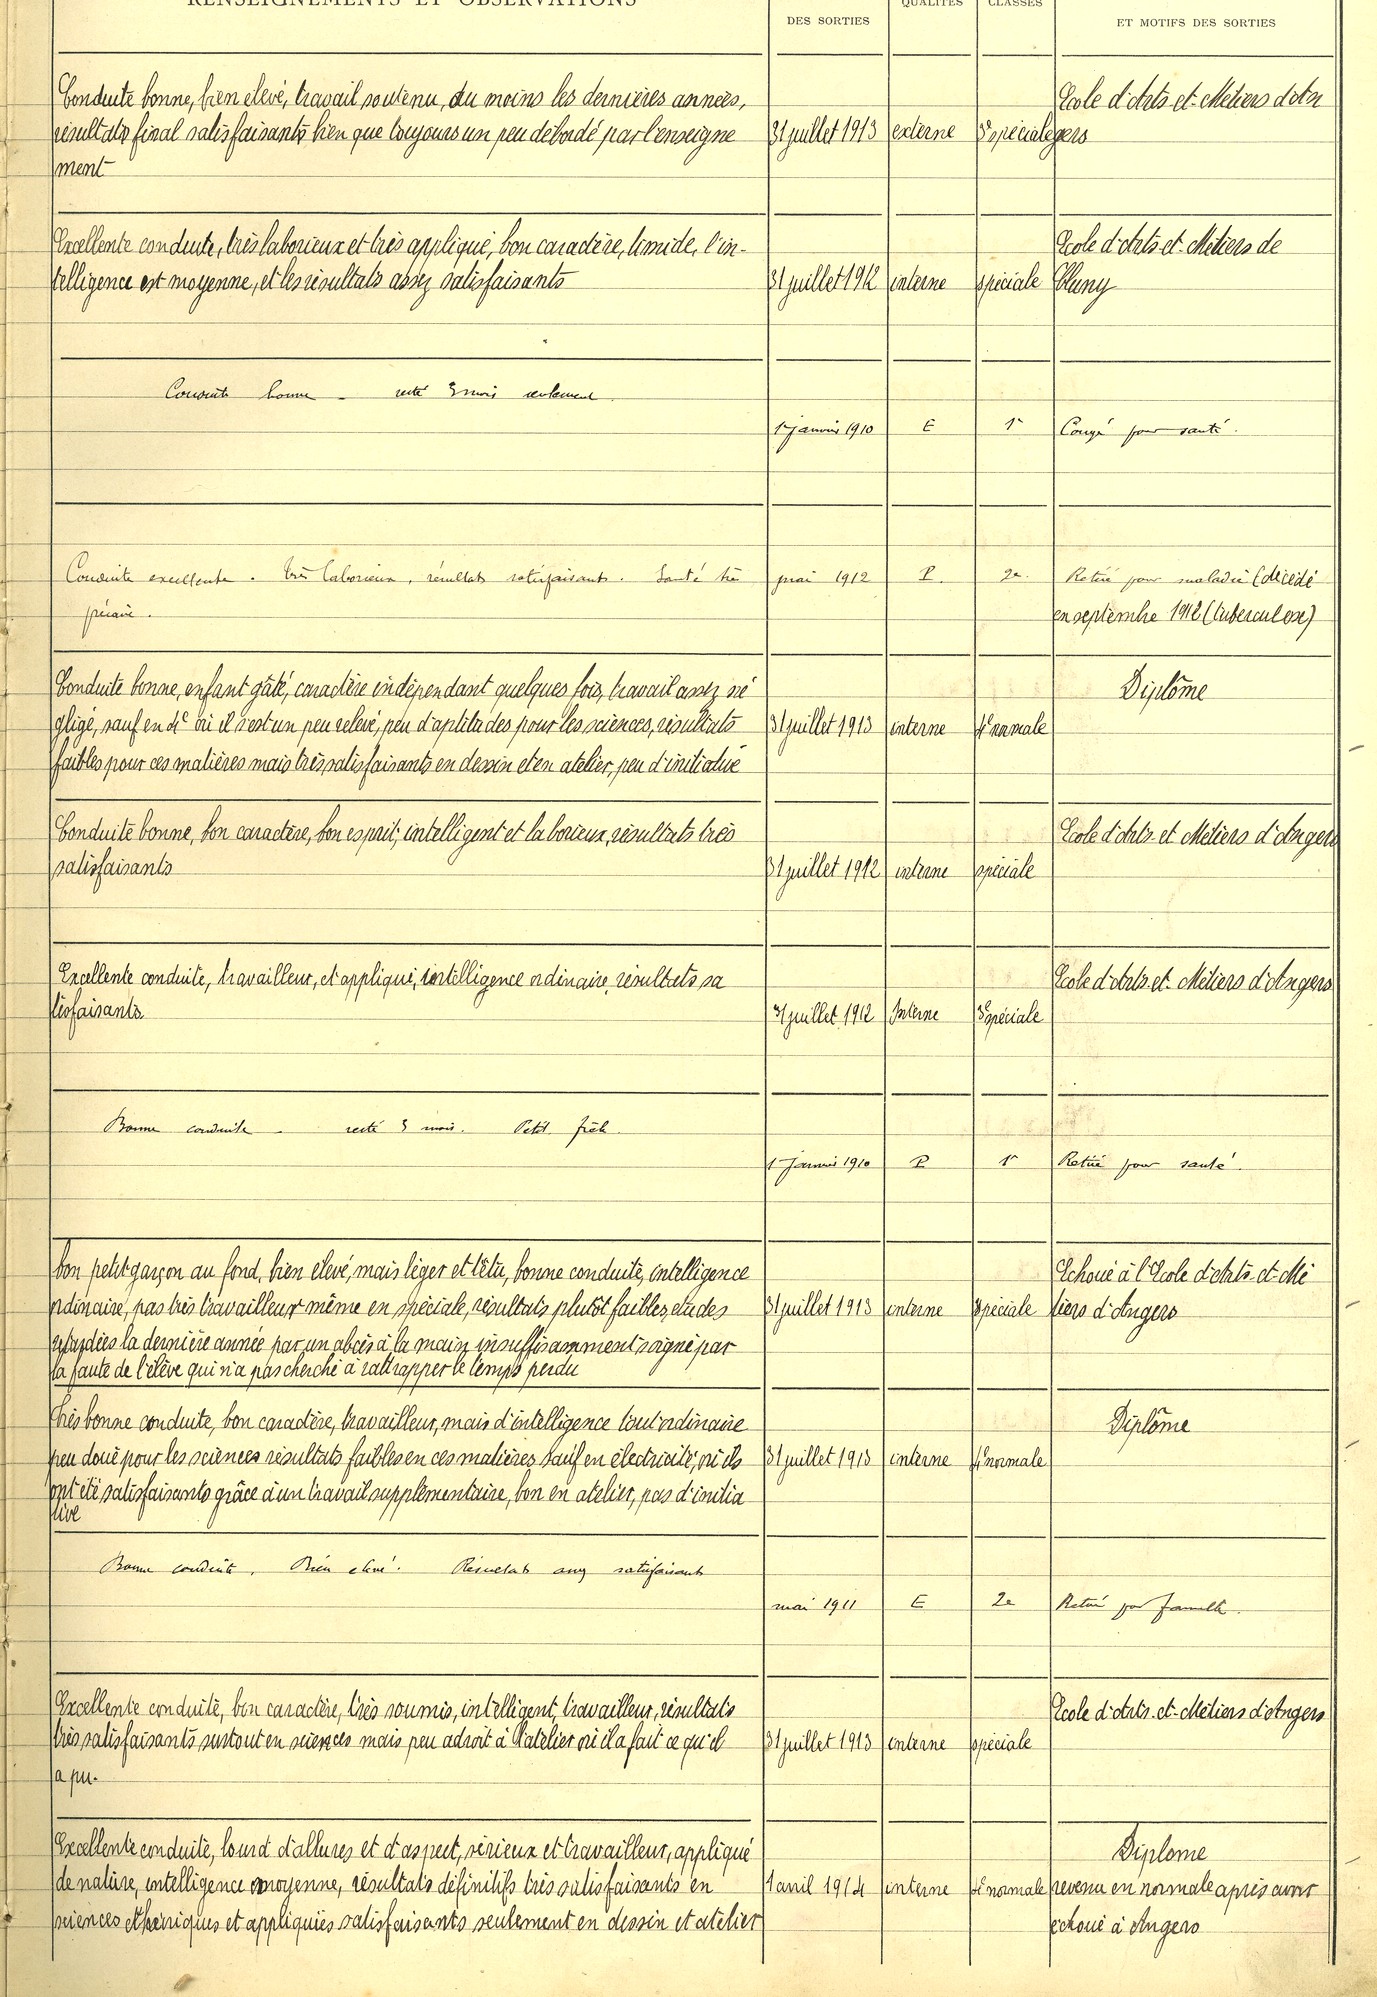 RENSEIGNEMENTS ET OBSERVATIONS
DES SORTIES
QUALITÉS
CLASSES
ET MOTIFS DES SORTIES
Conduite bonne, bien élevé, travail soutenu, du moins les dernières années,
résultats final satisfaisants bien que toujours un peu débordé par l'enseigne
ment
31 juillet 1913
externe
3e spéciale
Ecole d'Arts-et-Métiers d'An
gers
Excellente conduite, très laborieux et très appliqué, bon caractère, timide, l'in-
telligence est moyenne, et les résultats assez satisfaisants
31 juillet 1912
interne
spéciale
Ecole d'Arts-et-Métiers de
Cluny
Conduite bonne - resté 3 mois seulement.
1er janvier 1910
E
1re
Congé pour santé.
Conduite excellente. Très laborieux, résultats satisfaisants. Santé très
précaire.
mai 1912
P.
2e
Retiré pour maladie (décédé
en septembre 1912 (tuberculose)
Conduite bonne, enfant gâté, caractère indépendant quelques fois, travail assez né
gligé, sauf en 4e où il s'est un peu relevé, peu d'aptitudes pour les sciences, résultats
faibles pour ces matières mais très satisfaisants en dessin et en atelier, peu d'initiative
31 juillet 1913
interne
4e normale
Diplôme
Conduite bonne, bon caractère, bon esprit, intelligent et laborieux, résultats très
satisfaisants
31 juillet 1912
interne
spéciale
Ecole d'Arts-et Métiers d'Angers
Excellente conduite, travailleur, et appliqué, intelligence ordinaire, résultats sa
tisfaisants
31 juillet 1912
Interne
3e spéciale
Ecole d'Arts-et-Métiers d'Angers
Bonne conduite - resté 3 mois. Petit frêle.
1er janvier 1910
P
1re
Retiré pour santé.
bon petit garçon au fond, bien élevé, mais léger et têtu, bonne conduite, intelligence
ordinaire, pas très travailleur même en spéciale, résultats plutôt faibles, études
retardées la dernière année par un abcès à la main insuffisamment soigné par
la faute de l'élève qui n'a pas cherché à rattrapper le temps perdu
31 juillet 1913
interne
spéciale
Echoué à l'Ecole d'Arts-et-Mé
tiers d'Angers
très bonne conduite, bon caractère, travailleur, mais d'intelligence tout ordinaire
peu doué pour les sciences résultats faibles en ces matières sauf en électricité, où ils
ont été satisfaisants grâce à un travail supplémentaire, bon en atelier, pas d'initia
tive
31 juillet 1913
interne
4e normale
Diplôme
Bonne conduite, Bien élevé. Résultats assez satisfaisants
mai 1911
E
2e
Retiré par famille.
Excellente conduite, bon caractère, très soumis, intelligent, travailleur, résultats
très satisfaisants surtout en sciences mais peu adroit à l'atelier où il a fait ce qu'il
a pu.
31 juillet 1913
interne
spéciale
Ecole d'Arts-et-Métiers d'Angers
Excellente conduite, lourd d'allures et d'aspect, sérieux et travailleur, appliqué
de nature, intelligence moyenne, résultats définitifs très satisfaisants en
sciences théoriques et appliquées satisfaisants seulement en dessin et atelier
1 avril 1914
interne
4e normale
Diplome
revenu en normale après avoir
échoué à Angers